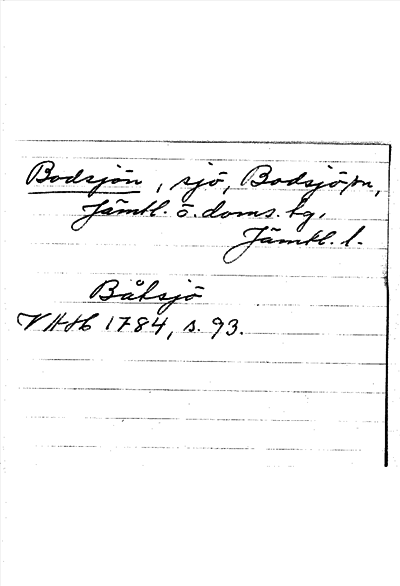 Bodsjön, sjö, Bodsjö sn,
Jämtl. ö. doms. tg.
Jämtl. l.
Båtsjö
VHH 1784, s. 93.